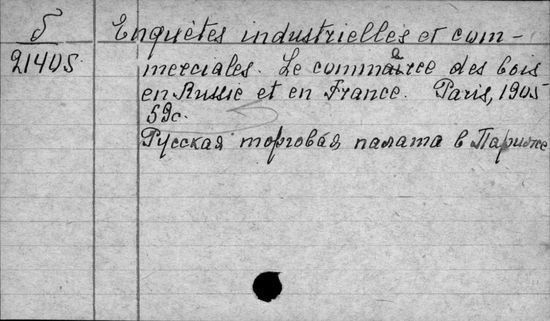 δ Enquêtes industrielles et com-
21405. merciales. Le commerce des bois
en Russie et en France. Paris, 1905
59с.
Русская торговая палата в Париже